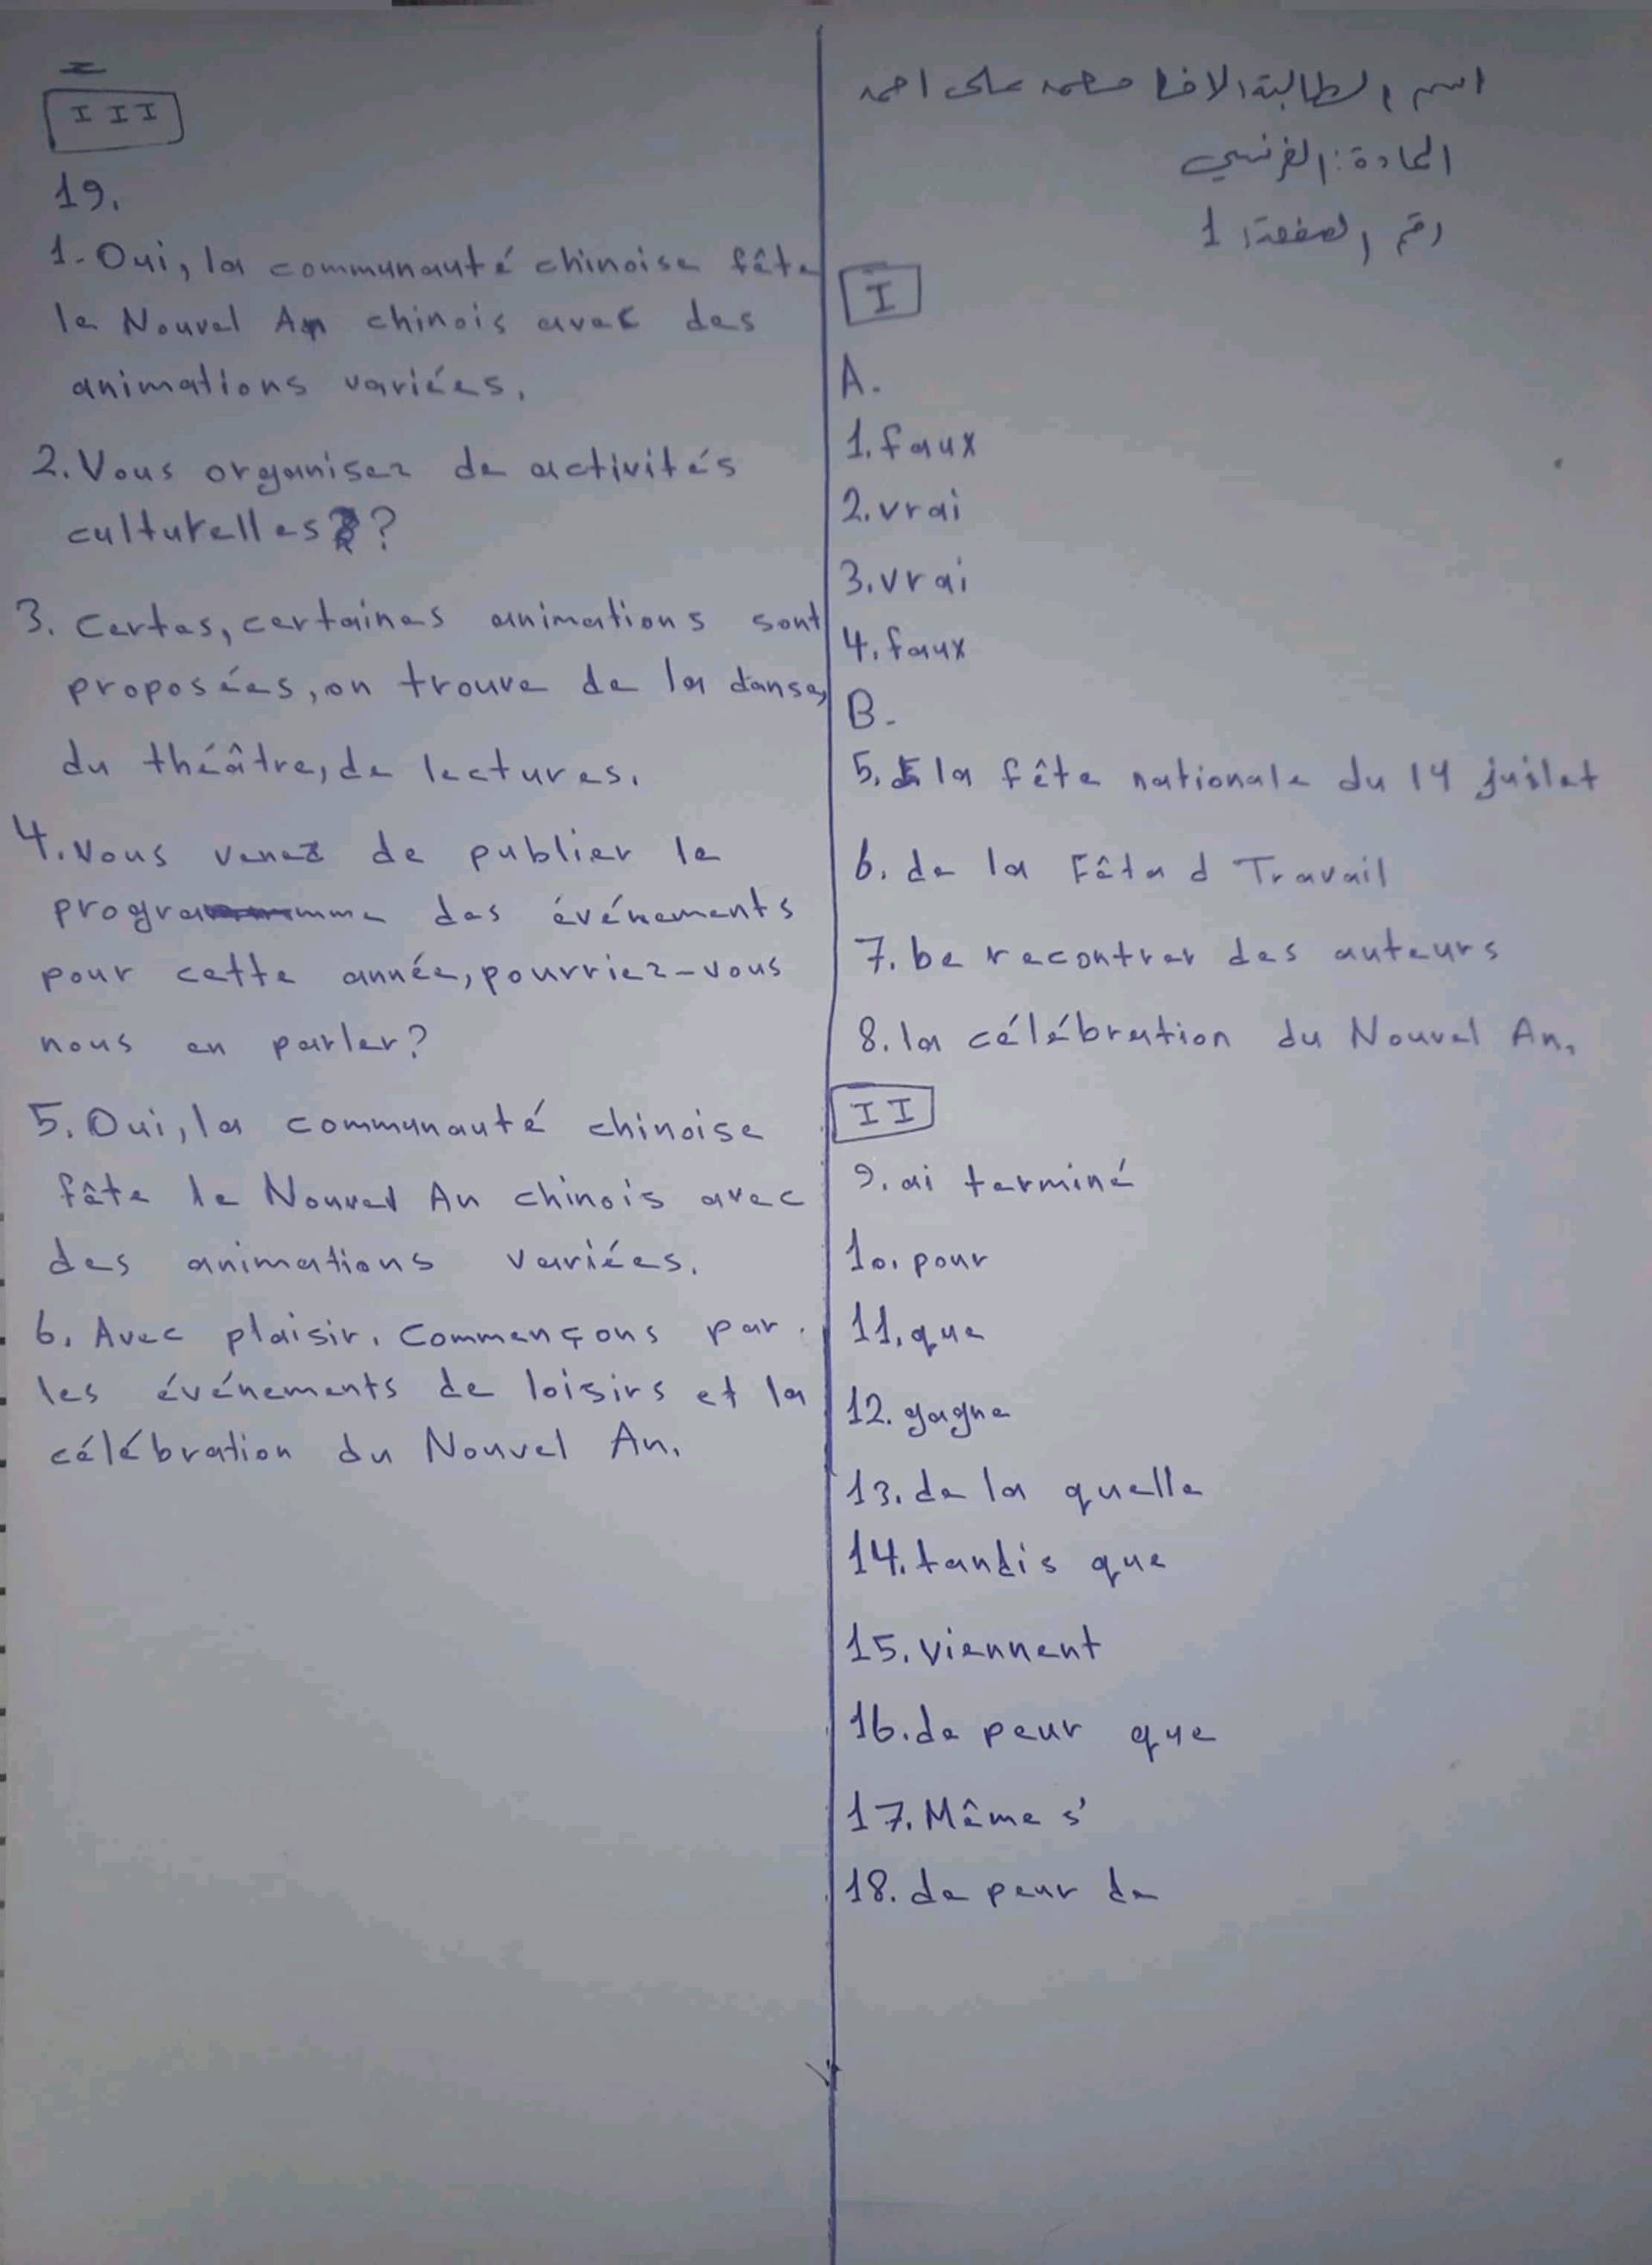 اسم الطالبة: الافا محمد على احمد
المادة: الفرنسي
رقم الصفحة: 1
I
A.
1. faux
2. vrai
3. vrai
4. faux
B.
5. la fête nationale du 14 juilet
6. de la Fête d Travail
7. be recontrer des auteurs
8. la célébration du Nouvel An.
II
9. ai terminé
10. pour
11. que
12. gagne
13. de la quelle
14. tandis que
15. viennent
16. de peur que
17. Même s'
18. de peur de
III
19.
1- Oui, la communauté chinoise fête
le Nouvel An chinois avec des
animations variées.
2. Vous organisez de activités
culturelles ?
3. Certes, certaines animations sont
proposées, on trouve de la danse,
du théâtre, de lectures.
4. Vous venez de publier le
programme des événements
pour cette année, pourriez-vous
nous en parler?
5. Oui, la communauté chinoise
fête le Nouvel An chinois avec
des animations variées.
6. Avec plaisir. Commençons par
les événements de loisirs et la
célébration du Nouvel An.